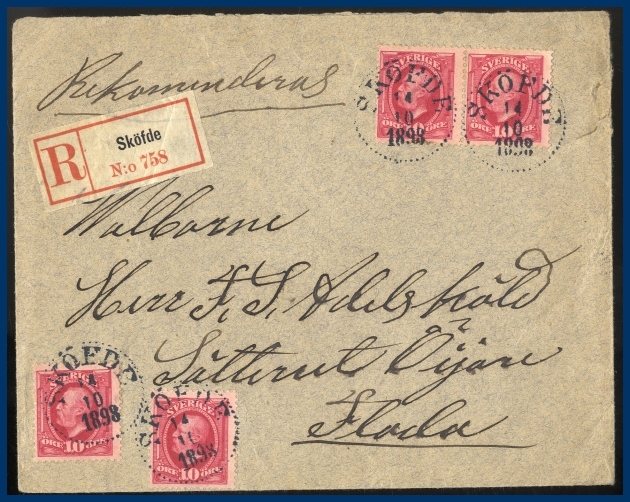 Rekommenderas
SVERIGE SVERIGE
SKÖFDE SKÖFDE
14 14
10 10
1898 1898
ÖRE 10 ÖRE 10 ÖRE
R Sköfde
N:o 758
Wälborne
Herr F. S. Adelsköld
Sätteriet Öijared
Floda
SKÖFDE
14
10
1898
SVERIGE
ÖRE 10 ÖRE
SKÖFDE
14
10
1898
SVERIGE
ÖRE 10 ÖRE